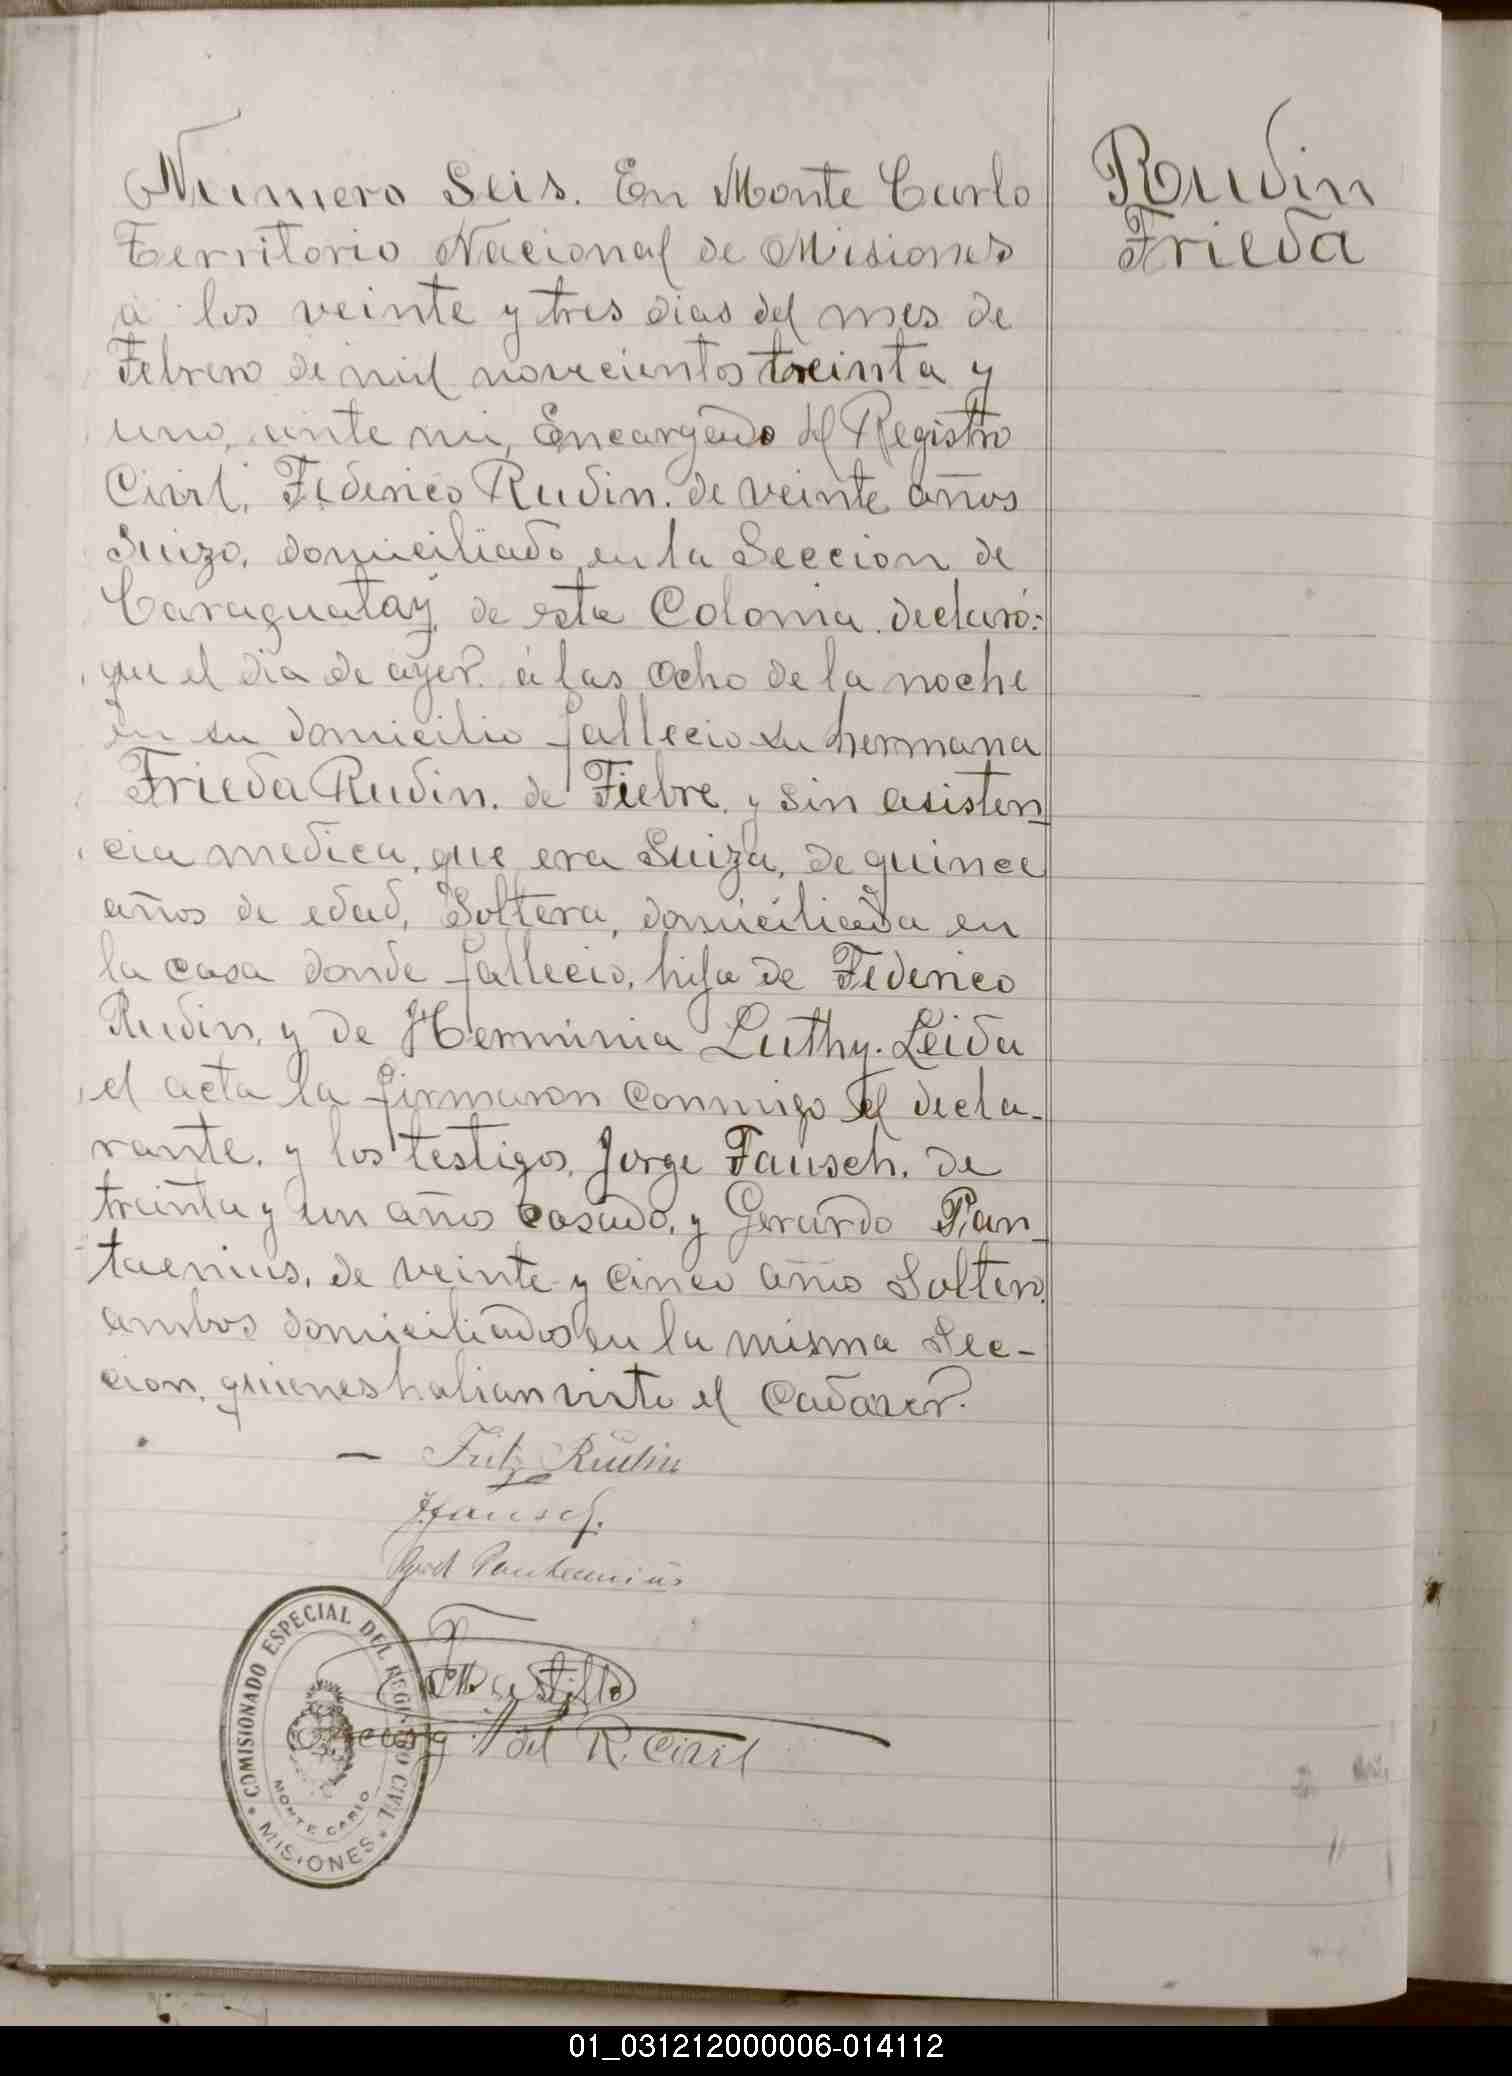 Numero Seis. En Monte Carlo
Territorio Nacional de Misiones
a los veinte y tres dias del mes de
Febrero de mil novecientos treinta y
uno, ante mi, Encargado del Registro
Civil, Federico Rudin. de veinte años
Suizo, domiciliado en la Seccion de
Caraguatay, de esta Colonia. declaró:
que el dia de ayer. á las ocho de la noche
en su domicilio fallecio su hermana
Frieda Rudin. de Fiebre, y sin asisten_
cia medica, que era Suiza, de quince
años de edad, Soltera, domiciliada en
la casa donde fallecio, hija de Federico
Rudin, y de Herminia Luthy. Leida
el acta la firmaron conmigo el decla-
rante, y los testigos, Jorge Fausch, de
treinta y un años casado, y Gerardo Pan_
taenius, de veinte y cinco años Soltero,
ambos domiciliados en la misma Sec-
cion, quienes habian visto el Cadaver.
Rudin
Frieda
Fritz Rudin
J. Fausch.
Gerd Pantaenius
Encarg del R. Civil
COMISIONADO ESPECIAL DEL REGISTRO CIVIL
MONTE CARLO
MISIONES
01_031212000006-014112